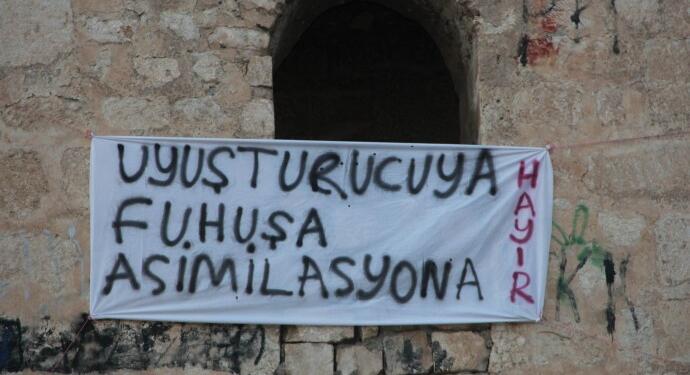 UYUŞTURUCUYA
FUHUŞA
ASİMİLASYONA
HAYIR